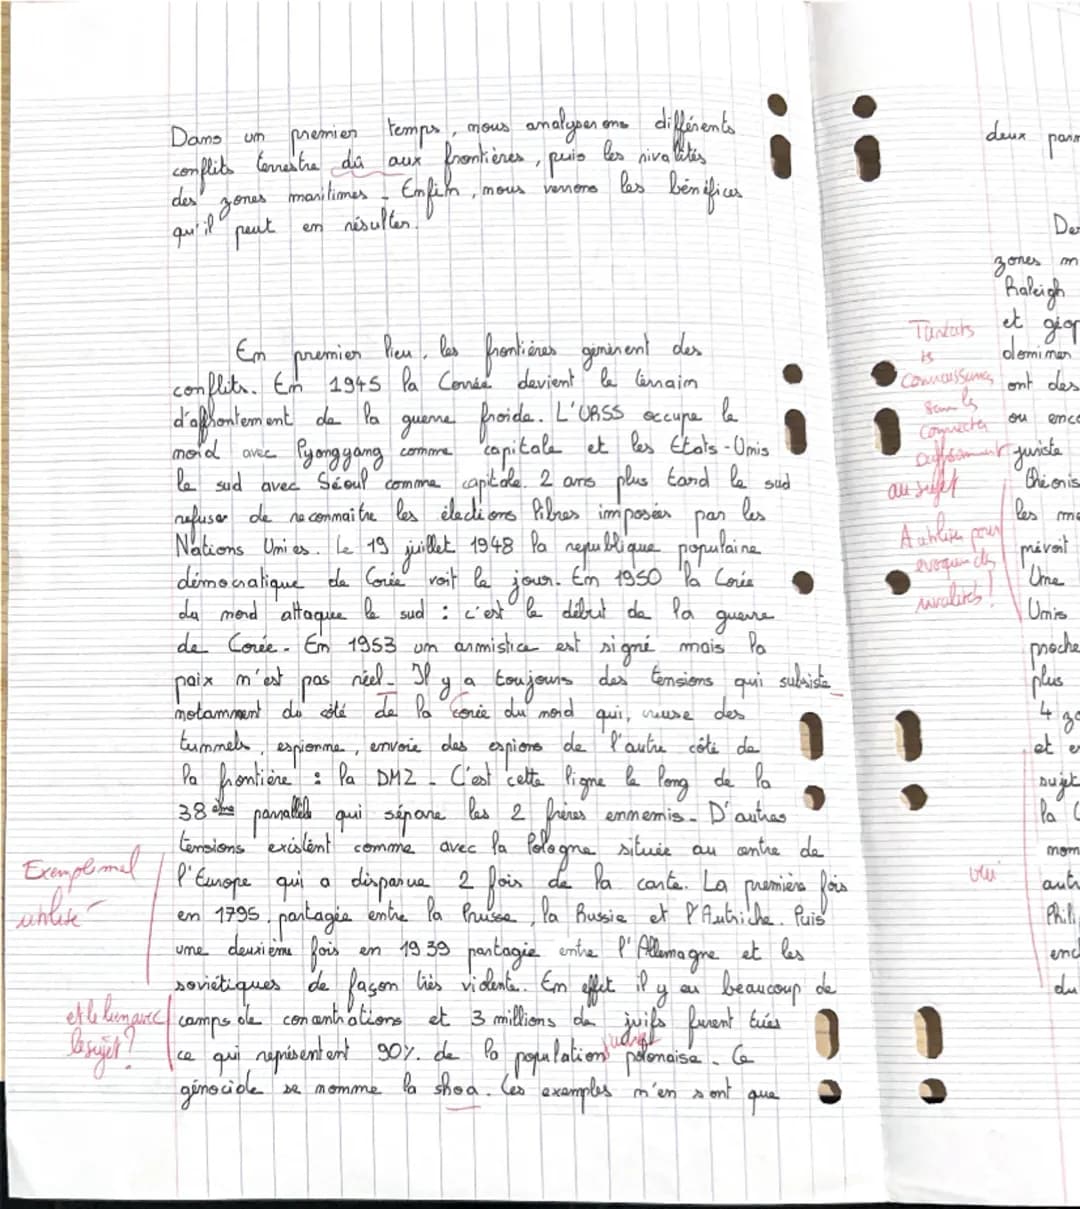 Dans un premier temps, nous analyserons différents
conflits terrestre dû aux frontières, puis les rivalités
des zones maritimes. Enfin, nous verrons les bénéfices
qu'il peut en résulter.
En premier lieu, les frontières génèrent des
conflits. En 1945 la Corrée devient le terrain
d'affrontement de la guerre froide. L'URSS occupe le
nord avec Pyonggyang comme capitale et les Etats-Unis
le sud avec Séoul comme capitale. 2 ans plus tard le sud
refuser de reconnaitre les élections libres imposées par les
Nations Unies. Le 19 juillet 1948 la republique populaine
démocratique de Corée voit le jour. En 1950 la Corée
du nord attaque le sud : c'est le début de la guerre
de Corée. En 1953 un armistice est signé mais la
paix n'est pas réel. Il y a toujours des tensions qui subsiste
notamment du côté de la Corée du nord qui, creuse des
tunnels, espionne, envoie des espions de l'autre côté de
la frontière : la DMZ. C'est cette ligne le long de la
38 ème parallèle qui sépare les 2 frères ennemis. D'autres
tensions existent comme avec la Pologne située au centre de
l'Europe qui a disparue 2 fois de la carte. La première fois
en 1795, partagée entre la Prusse, la Russie et l'Autriche. Puis
une deuxième fois en 1939 partagée entre l'Allemagne et les
soviétiques de façon très violente. En effet il y eu beaucoup de
camps de concentrations et 3 millions de juifs furent tués
ce qui représentent 90% de la population polonaise. Ce
génocide se nomme la shoa. Ces exemples n'en sont que
Exemple mal
utilisé
et le lien avec
le sujet ?
connaissances
au sujet
A utiliser pour
évoquer des
rivalités !
deux
zones
Raleigh
et
dominer
ont des
ou
juriste
les
prévoit
Une
Unis
proche
plus
4
et
sujet
la